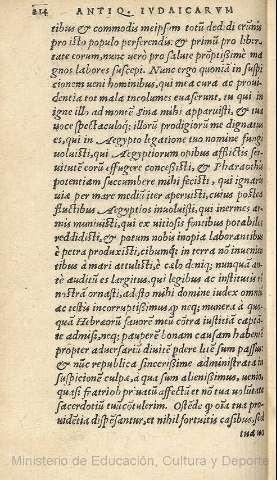 214 ANTIQ. IVDAICARVM
tibus & commodis meipsum totū dedidi erūnis
pro isto populo perferendis: & primū pro liber
tate eorum, nunc uerò pro salute prōptißimè ma
gnos labores suscepi. Nunc ergo quoniā in suspi
cionem ueni hominibus, qui mea cura ac proui
dentia tot mala incolumes euaserunt, tu qui in
igne illo ad montē Sina mihi apparuisti, & tua
uoce spectaculoq; illorū prodigiorū me dignatus
es, qui in Aegypto legatione tuo nomine fungi
uoluisti, qui Aegyptiorum opibus afflictis ser-
uitutē eorū effugere concesisti, & Pharaothæ
potentiam succumbere mihi fecisti, qui ignaris
uiæ per mare mediū iter aperuisti, cuius postea
fluctibus Aegyptios inuoluisti, qui inermes ar-
mis muniuisti, qui ex uitiosis fontibus potabiles
reddidisti, & potum nobis inopia laborantibus
è petra produxisti, cibumq; in terra nō inuenien
tibus à mari attulisti, è cælo deniq; nunquā an-
te auditū es largitus, qui legibus ac institutis rē
nostrā ornasti, adesto mihi domine iudex omniū
ac testis incorruptißimus ꝙ neq; munera à quo-
quā Hebræorū fauorē meū cōtra iustitiā captā-
te admisi, neq; pauperē bonam causam habentē
propter aduersariū diuitē pdere litē sum passus:
& nūc republica sincerißimè administrata in
suspicionē culpæ, à qua sum alienißimus, ueni,
quasi fratri ob priuatū affectū et nō tua volūtate
sacerdotiū tuū cōtulerim. Ostēde ꝙ oīa tua pro
uidētia dispēsantur, et nihil fortuitis casibus, sed
tua uo
Ministerio de Educación, Cultura y Deporte